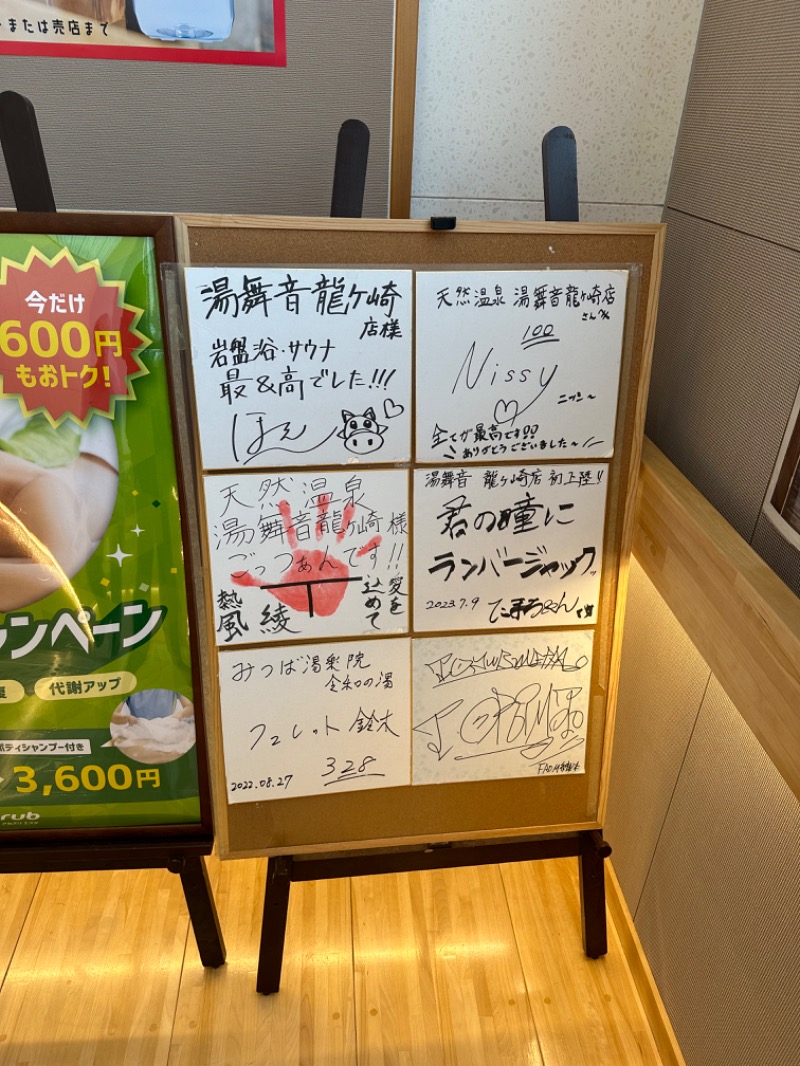 または売店まで
今だけ
600円
もおトク!
ンペーン
代謝アップ
ボディシャンプー付き
3,600円
rub
湯舞音龍ヶ崎
店様
岩盤浴・サウナ
最&高でした!!!
天然温泉 湯舞音龍ヶ崎店
さんへ
100
Nissy
ニッシ〜
全てが最高です!!
ありがとうございました〜
天然温泉
湯舞音龍ヶ崎様
ごっつぁんです!!
愛を
込めて
熱風
綾
湯舞音 龍ヶ崎店 初上陸!!
君の瞳に
ランバージャックッ
2023.7.9
みつば湯楽院
令和の湯
フェレット鈴木
328
2022.08.27